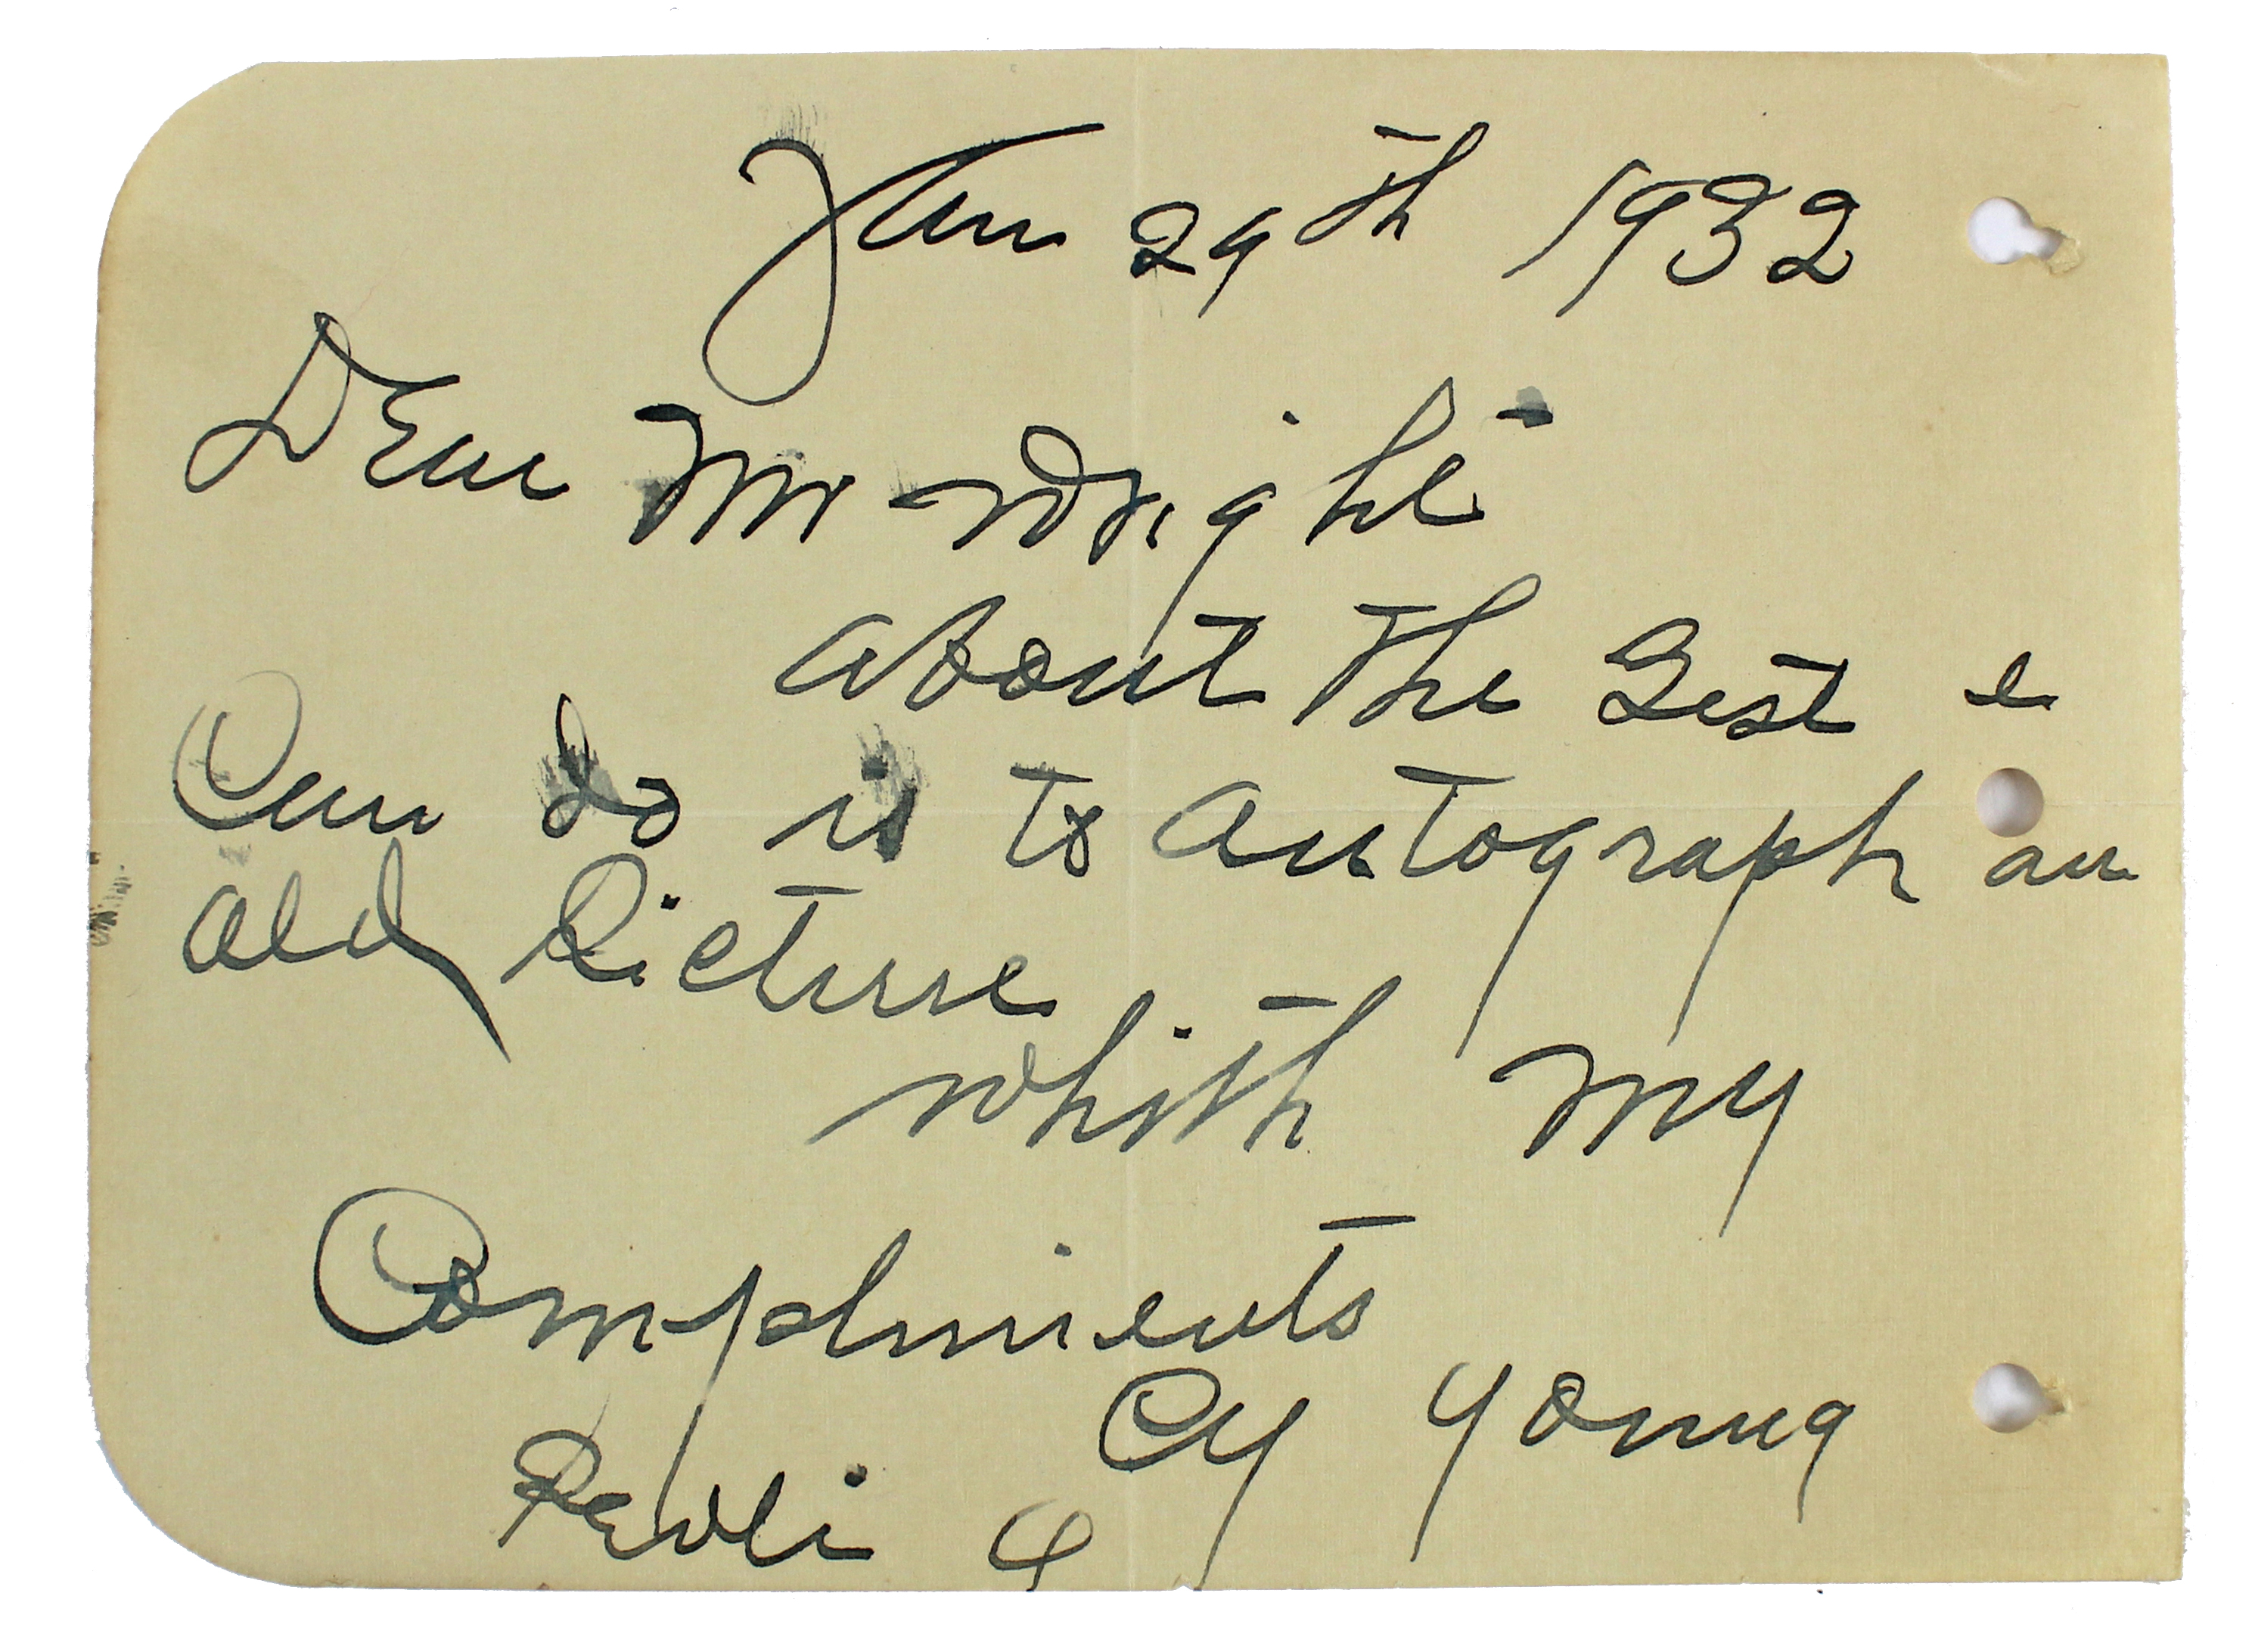 Jan 29th 1932
Dear Mr Wright
about the Best I
Can do is to autograph an
old Picture
whith my
Compliments
Cy Young
Peoli O